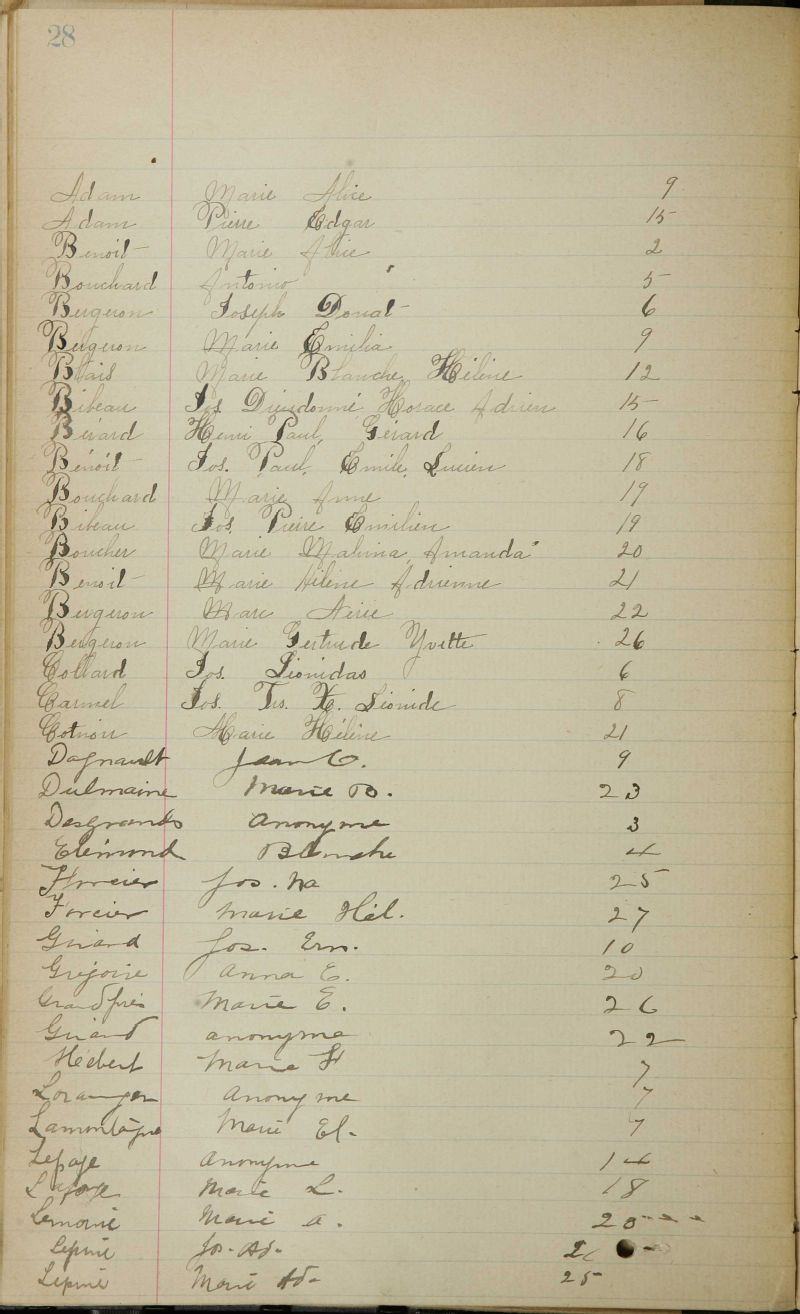 28
Adam Marie Alice 9
Adam Pierre Edgar 15
Benoit Marie Alice 2
Bouchard Antonio 5
Bergeron Joseph Donat 6
Bergeron Marie Emilia 9
Blais Marie Blanche Hélène 12
Bibeau Jos Dieudonné Horace Adrien 15
Bérard Henri Paul Gérard 16
Benoit Jos. Paul, Emile, Lucien 18
Bouchard Marie Anne 19
Bibeau Jos. Pierre Emilien 19
Boucher Marie Malvina Amanda 20
Benoit Marie Hélène Adrienne 21
Bergeron Marc Nérée 22
Bergeron Marie Gertrude Yvette 26
Collard Jos. Léonidas 6
Carmel Jos. Trs. X. Léonide 8
Cotnoir Marie Hélène 21
Dagnault Jean O. 9
Dulmaine Marie B. 23
Desgrands Anonyme 3
Elémond Blanche 4
Forcier Jos. Na 25
Forcier Marie Hél. 27
Girard Jos. Ern. 10
Grégoire Anna E. 20
Grandpré Marie E. 26
Girard anonyme 22
Hébert Marie 7
Loranger Anonyme 7
Lamontagne Marie El. 7
Lepage anonyme 14
Marie L. 18
Lemoine Marie a. 20
Lépine Jos. Ad.
Lépine Marie Ad. 25